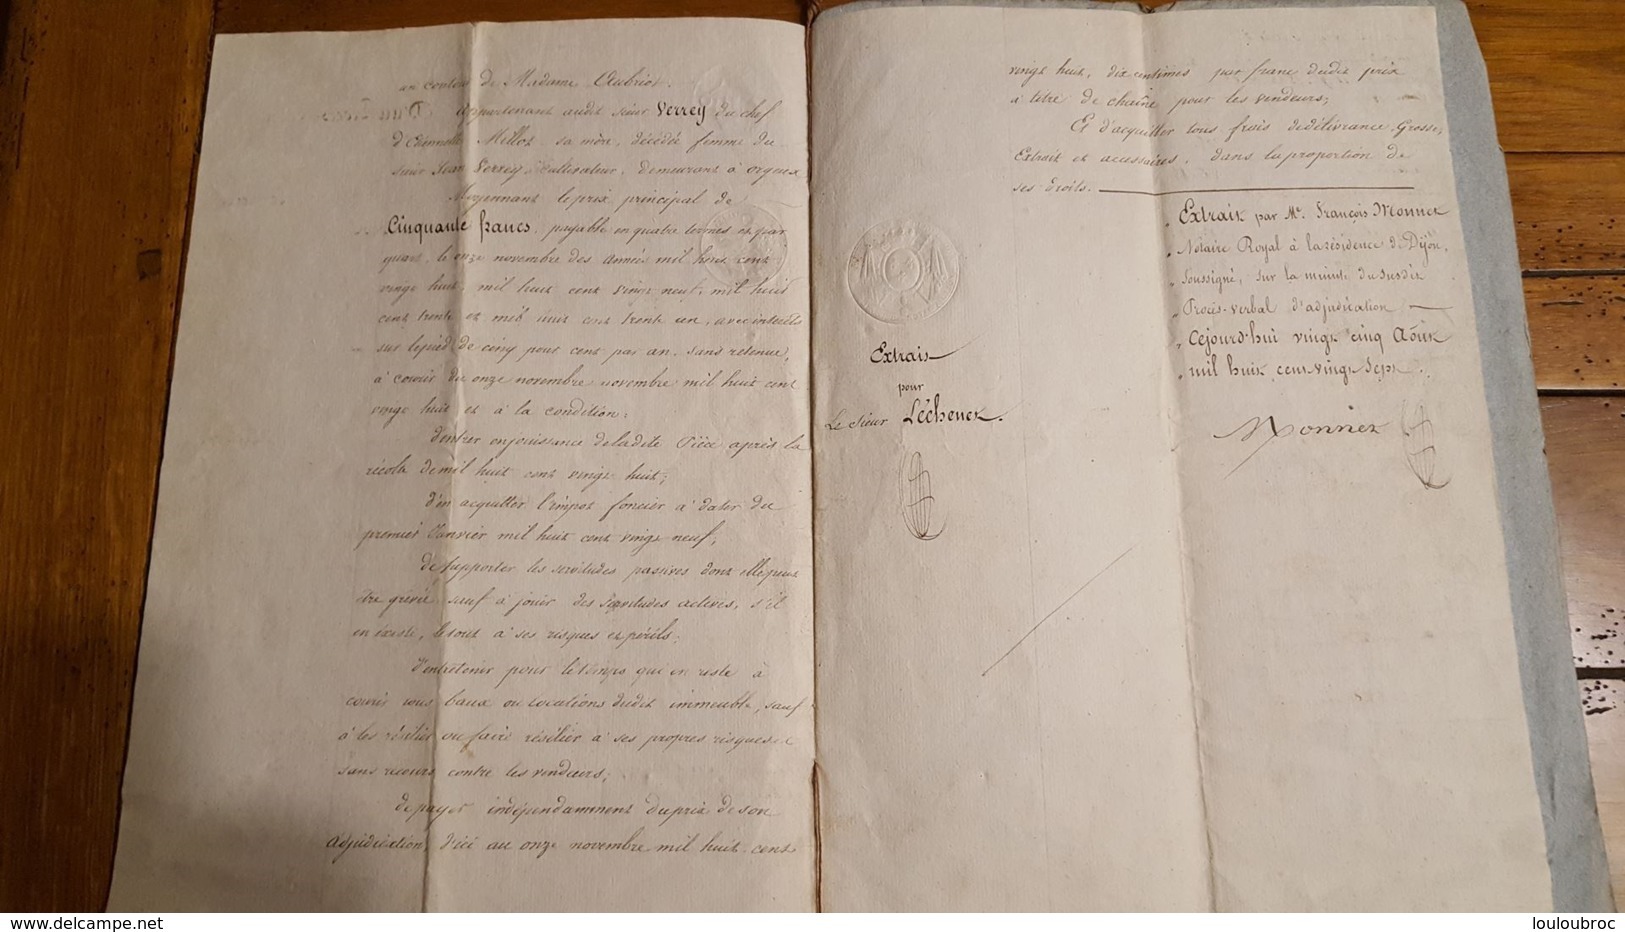 de Madame Aubriot.
appartenant audit sieur Verrey du chef
Millot sa mère, décédé femme du
sieur Jean Verrey, Cultivateur, demeurant à orgeux
Moyennant le prix principal de
Cinquante francs, payable en quatre termes et par
quart, le onze novembre des années mil huit cent
vingt huit, mil huit cent vingt neuf, mil huit
cent trente et mil huit cent trente un, avec intérêts
sur le pied de cinq pour cent par an, sans retenue,
à courir du onze novembre novembre mil huit cent
vingt huit et à la condition:
d'entrer en jouissance de ladite Pièce après la
récolte de mil huit cent vingt huit;
d'en acquitter l'impot foncier à dater du
premier Janvier mil huit cent vingt neuf;
de supporter les servitudes passives dont elle peut
être grevée sauf à jouir des servitudes actives, s'il
en existe, le tout à ses risques et périls;
d'entretenir pour le temps qui en reste à
courir tous baux ou locations dudit immeuble, sauf
à les résilier ou faire résilier à ses propres risques et
sans recours contre les vendeurs;
de payer indépendamment du prix de son
adjudication, d'ici au onze novembre mil huit cent
vingt huit, dix centimes par franc dudit prix
à titre de chaîne pour les vendeurs;
Et d'acquitter tous frais de délivrance, Grosse,
Extrait et accessoires, dans la proportion de
ses droits.
Extrait
pour
Le Sieur Léchenet.
Extrait par Me. François Monnet
Notaire Royal à la résidence de Dijon,
soussigné, sur la minute du susdit
Procès-verbal d'adjudication
Cejourd'hui vingt cinq Août
mil huit cent vingt sept.
Monnet
delcampe.net
louloubroc